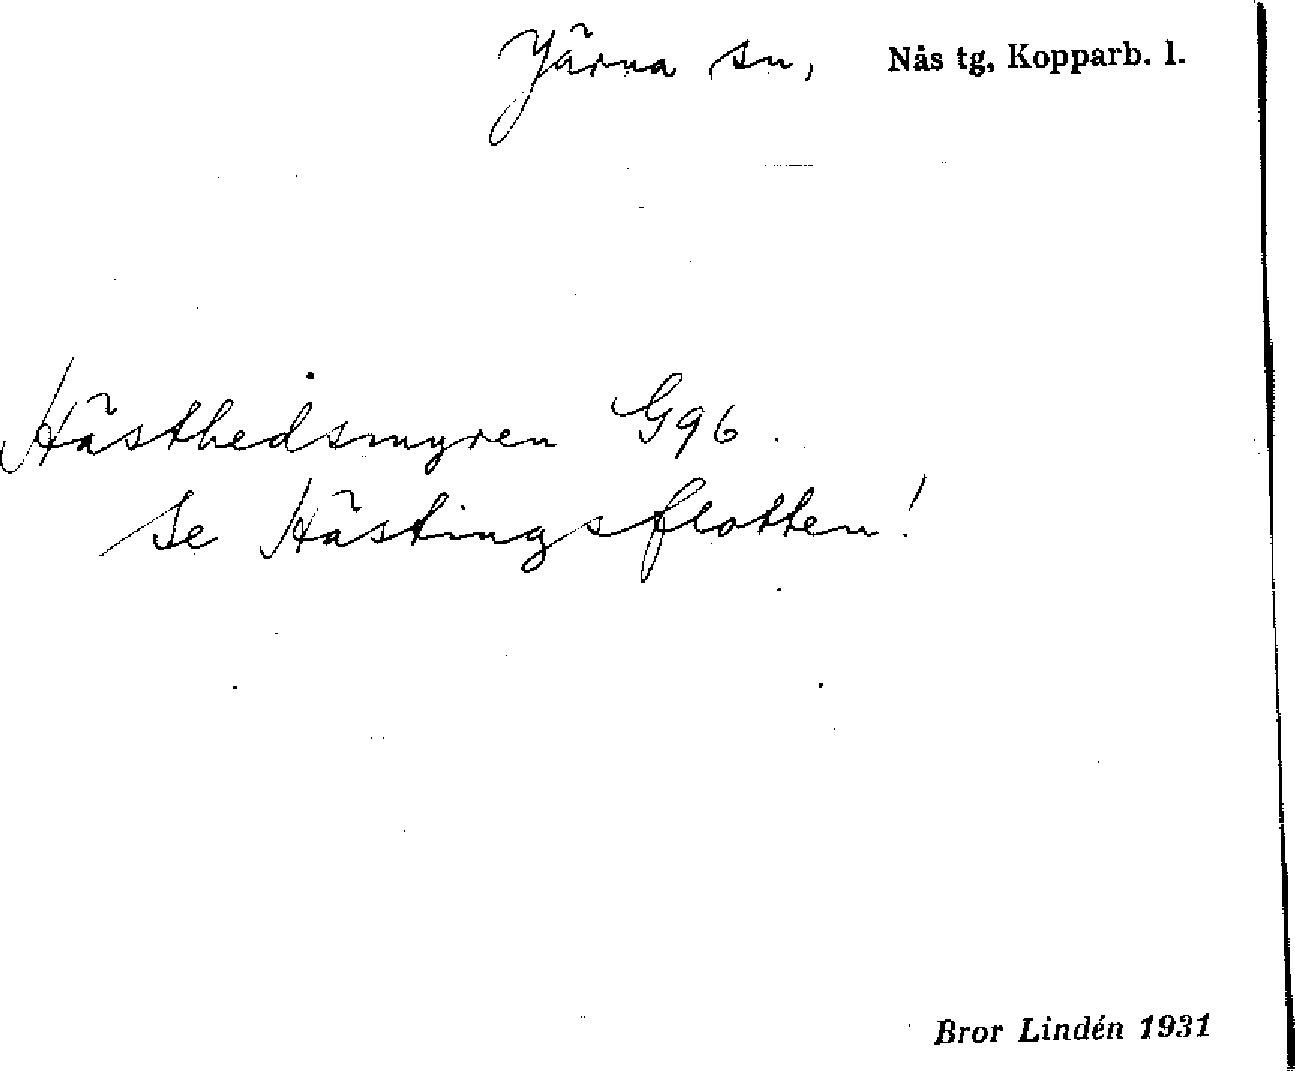 Järna sn, Nås tg, Kopparb. l.
Hästhedsmyren G96.
Se Hästingsflotten!
Bror Lindén 1931